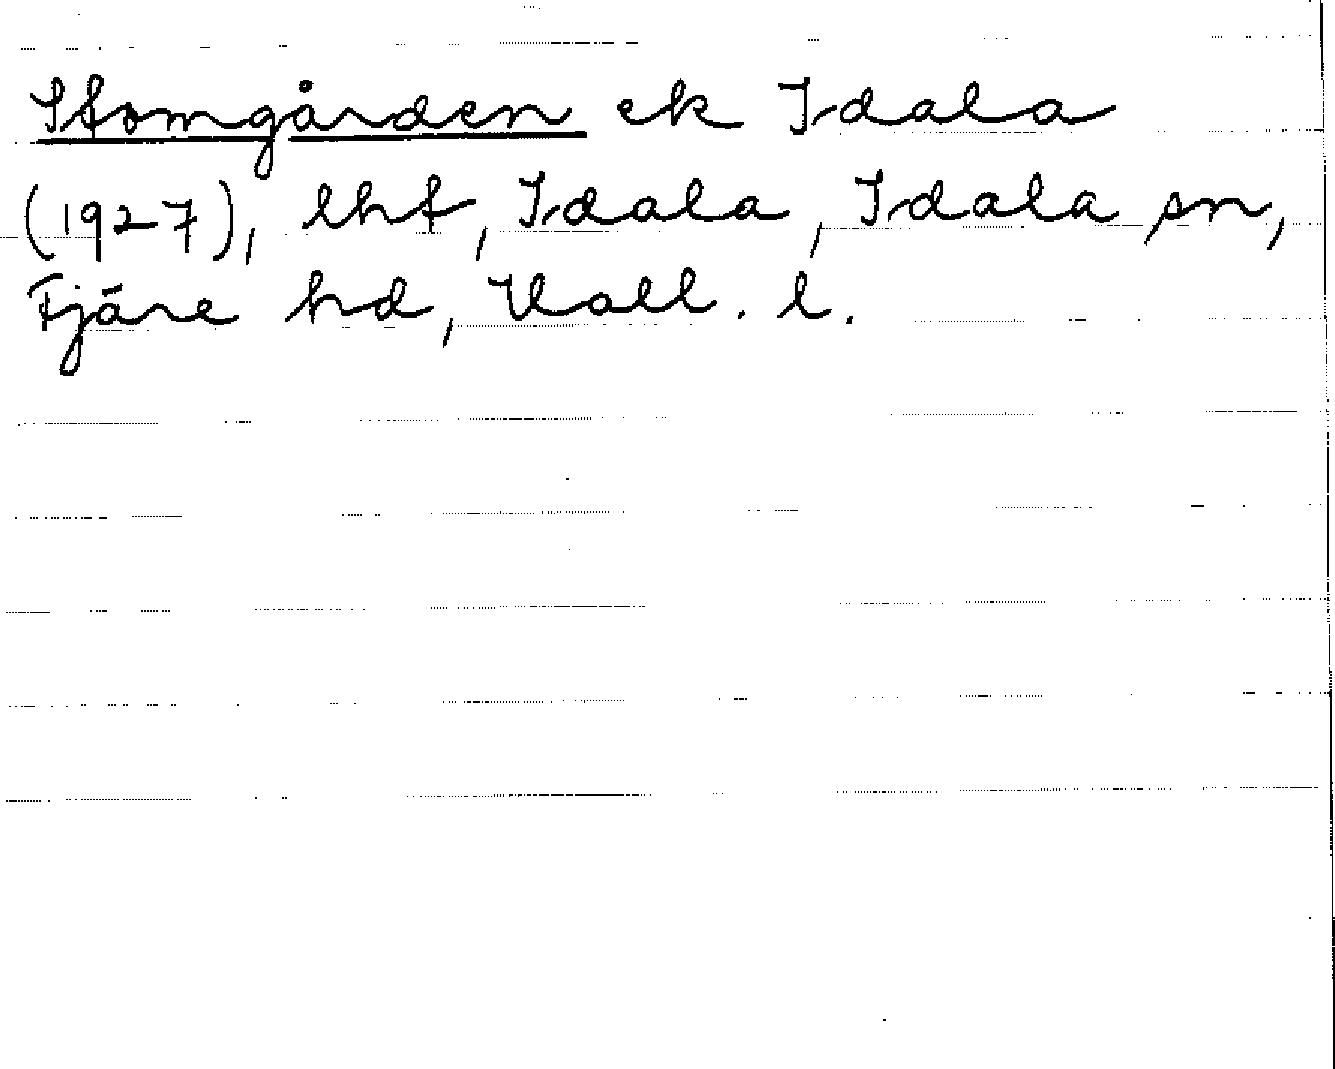 Stomgården ek Idala
(1927), lht, Idala, Idala sn,
Fjäre hd, Hall. l.